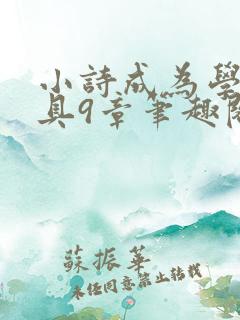 小詩成為學
具9章筆趣閣
蘇振華
未任同意禁止轉載